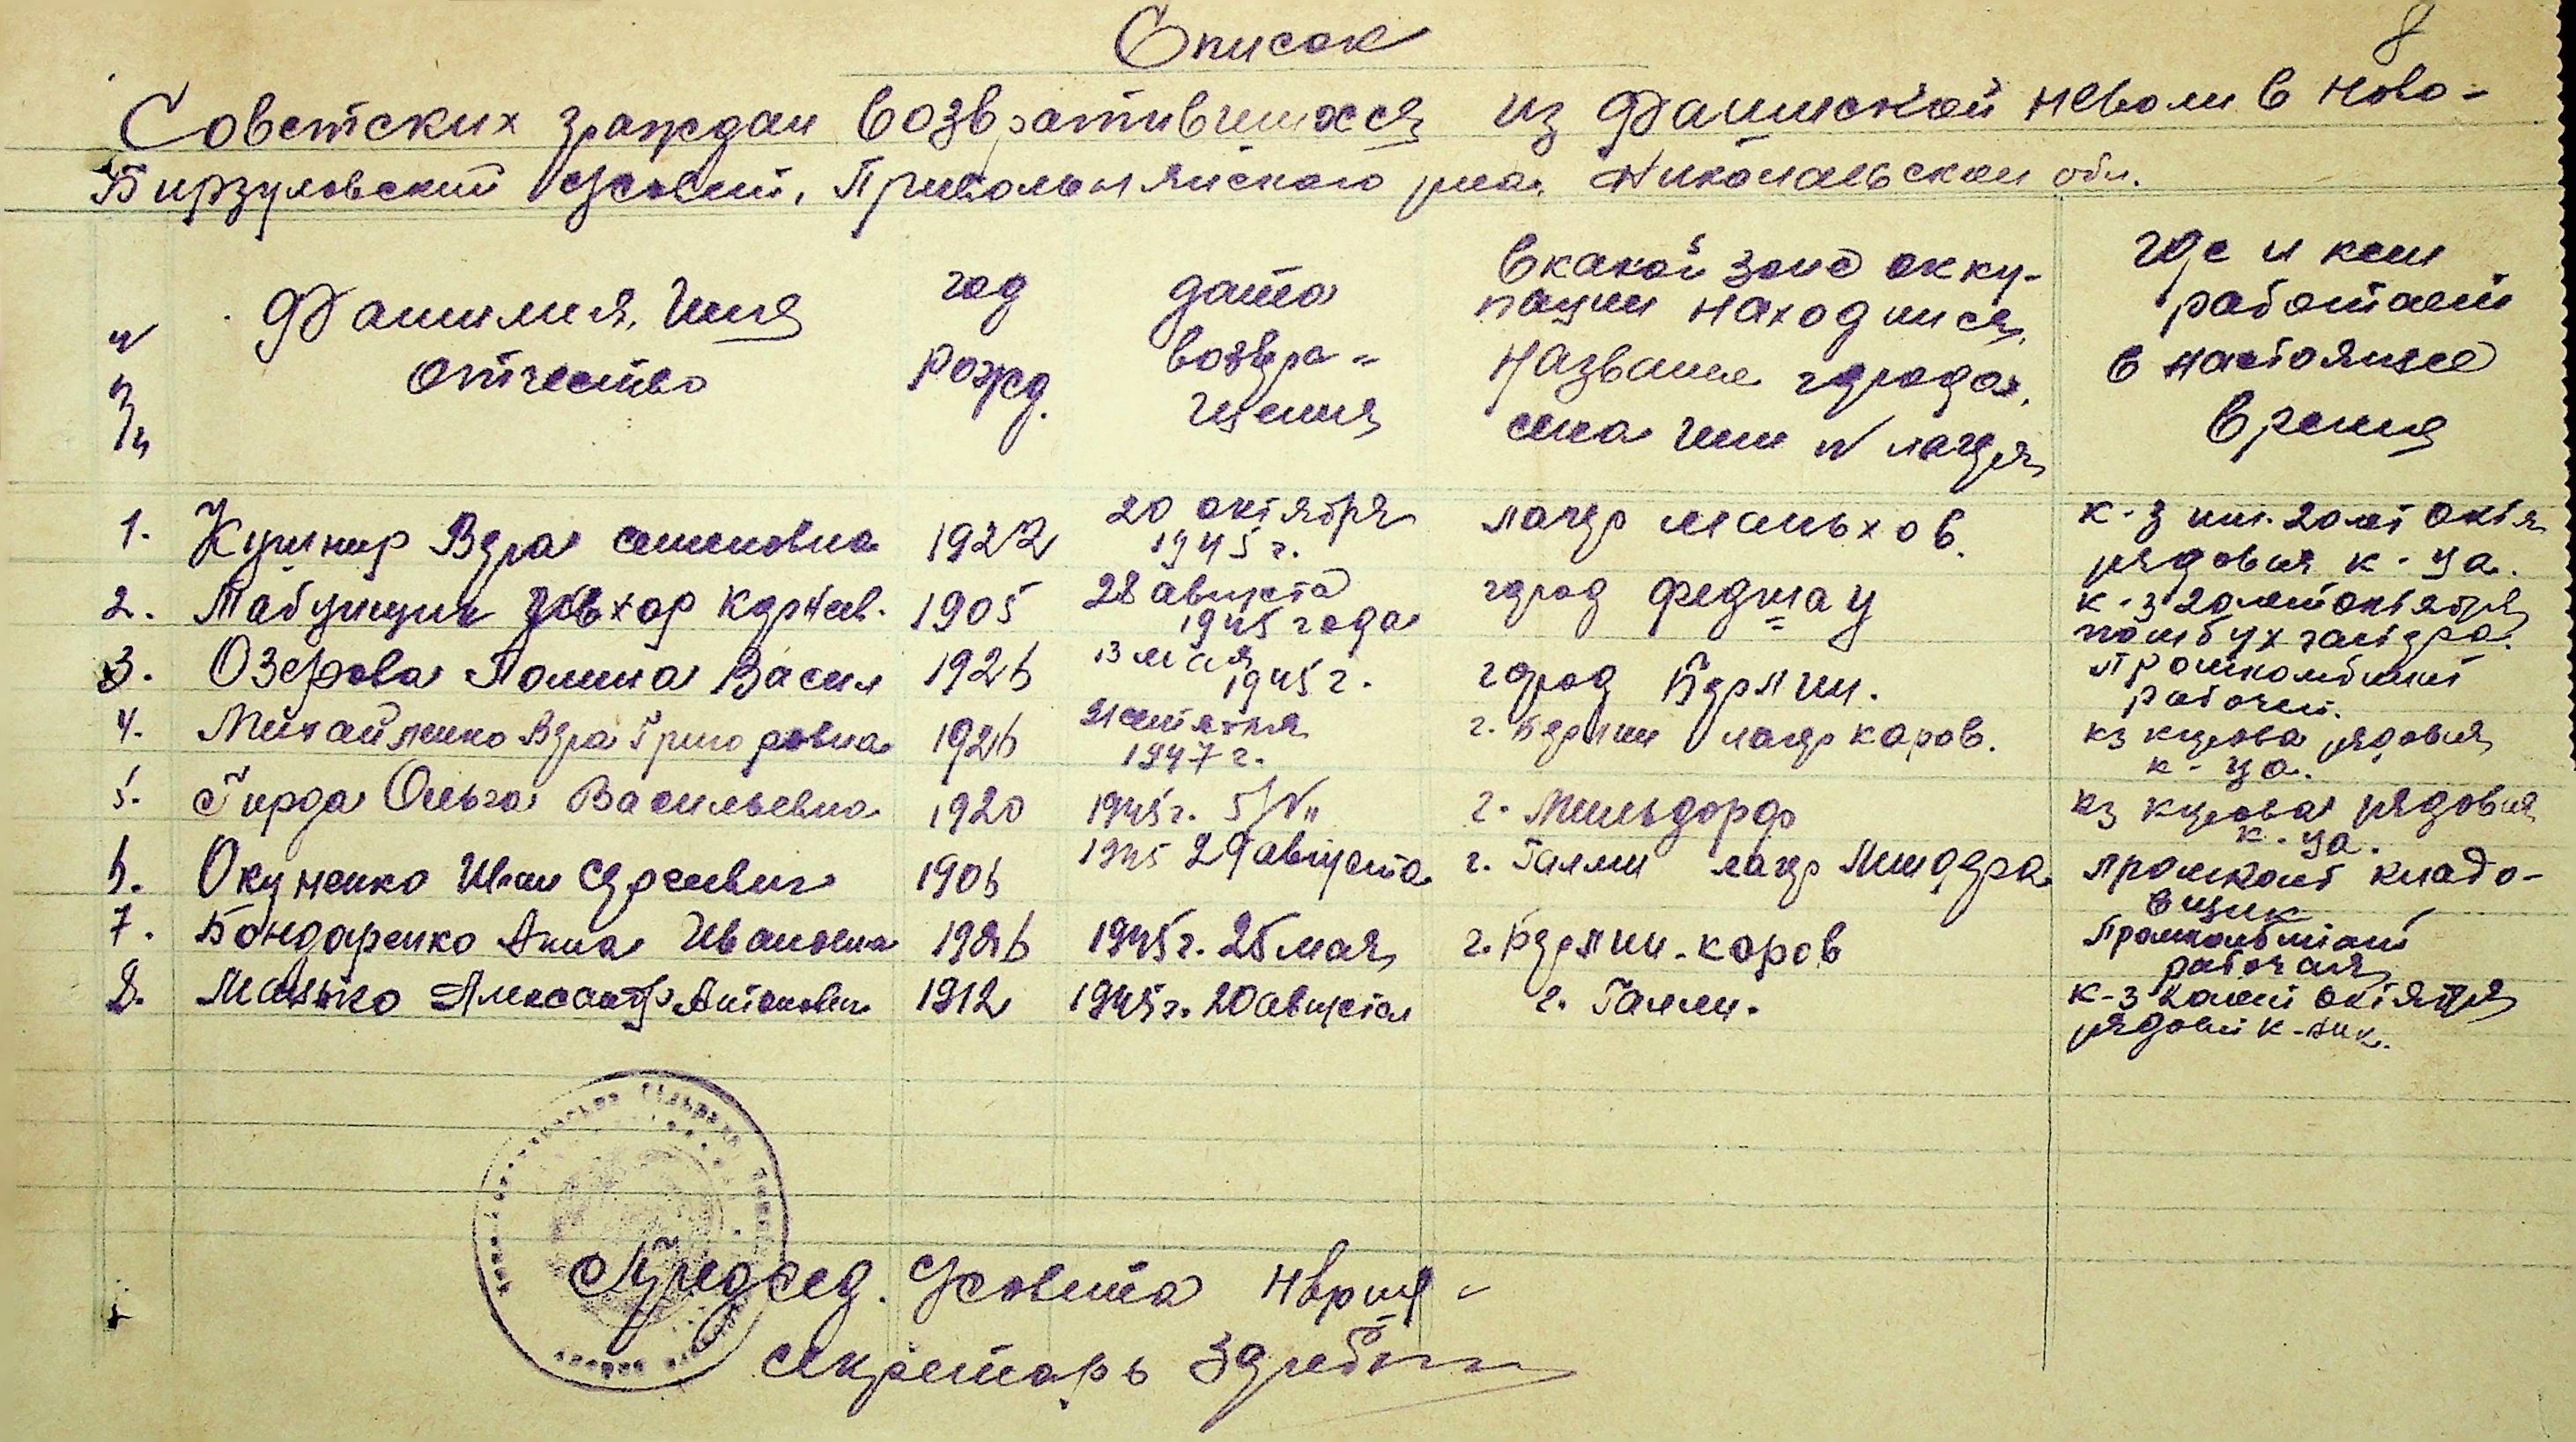 8
Список
Советских граждан возвратившихся из Фашиской неволи в Ново-
Бирзуловский с/совет, Привольнянского р-на, Николаевской обл.
N п/п
Фамилия, Имя отчество
год рожд.
дата возвра-щения
В какой зоне окку-пации находился, Название города, села или N лагеря
где и кем работает в настоящее время
1. Кушнир Вера семеновна 1922 20 октября 1945 г. лагер маньхов. к-з им. 20 лет Октя рядовая к-ца.
2. Табунщик 1905 28 августа 1945 года город к-з 20 лет октября помбухгалтера.
3. Озерова Полина Васил 1926 13 мая 1945 г. город Берлин. Промкомбинат рабочий.
4. Михайленко Вера Григоровна 1926 21 1947 г. г. Берлин лагер каров. кз кирова рядовая к-ца.
5. Гирда Ольга Васильевна 1920 1945 г. 5/V г. Мильдорф кз кирова рядовая к-ца.
6. Окуненко Иван Сергеевич 1906 1945 29 августа г. Галли лагер промкомб кладо-вщик
7. Бондаренко Анна Ивановна 1926 1945 г. 25 мая г. Берлин-каров Промкомбинат рабочая
8. Александр Антонович 1912 1945 г. 20 августа г. Галли. к-з 20 лет октября рядовой к-ник.
Председ. с/совета
секретарь